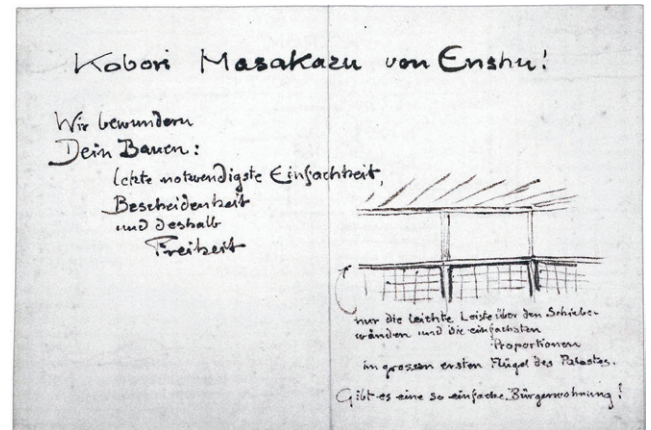 Kobori Masakazu von Enshu!
Wir bewundern
Dein Bauen:
letzte notwendigste Einfachheit,
Bescheidenheit
und deshalb
Freiheit
nur die leichte Leiste über den Schiebe-
wänden und die einfachsten
Proportionen
im grossen ersten Flügel des Palastes.
Gibt es eine so einfache Bürgerwohnung?